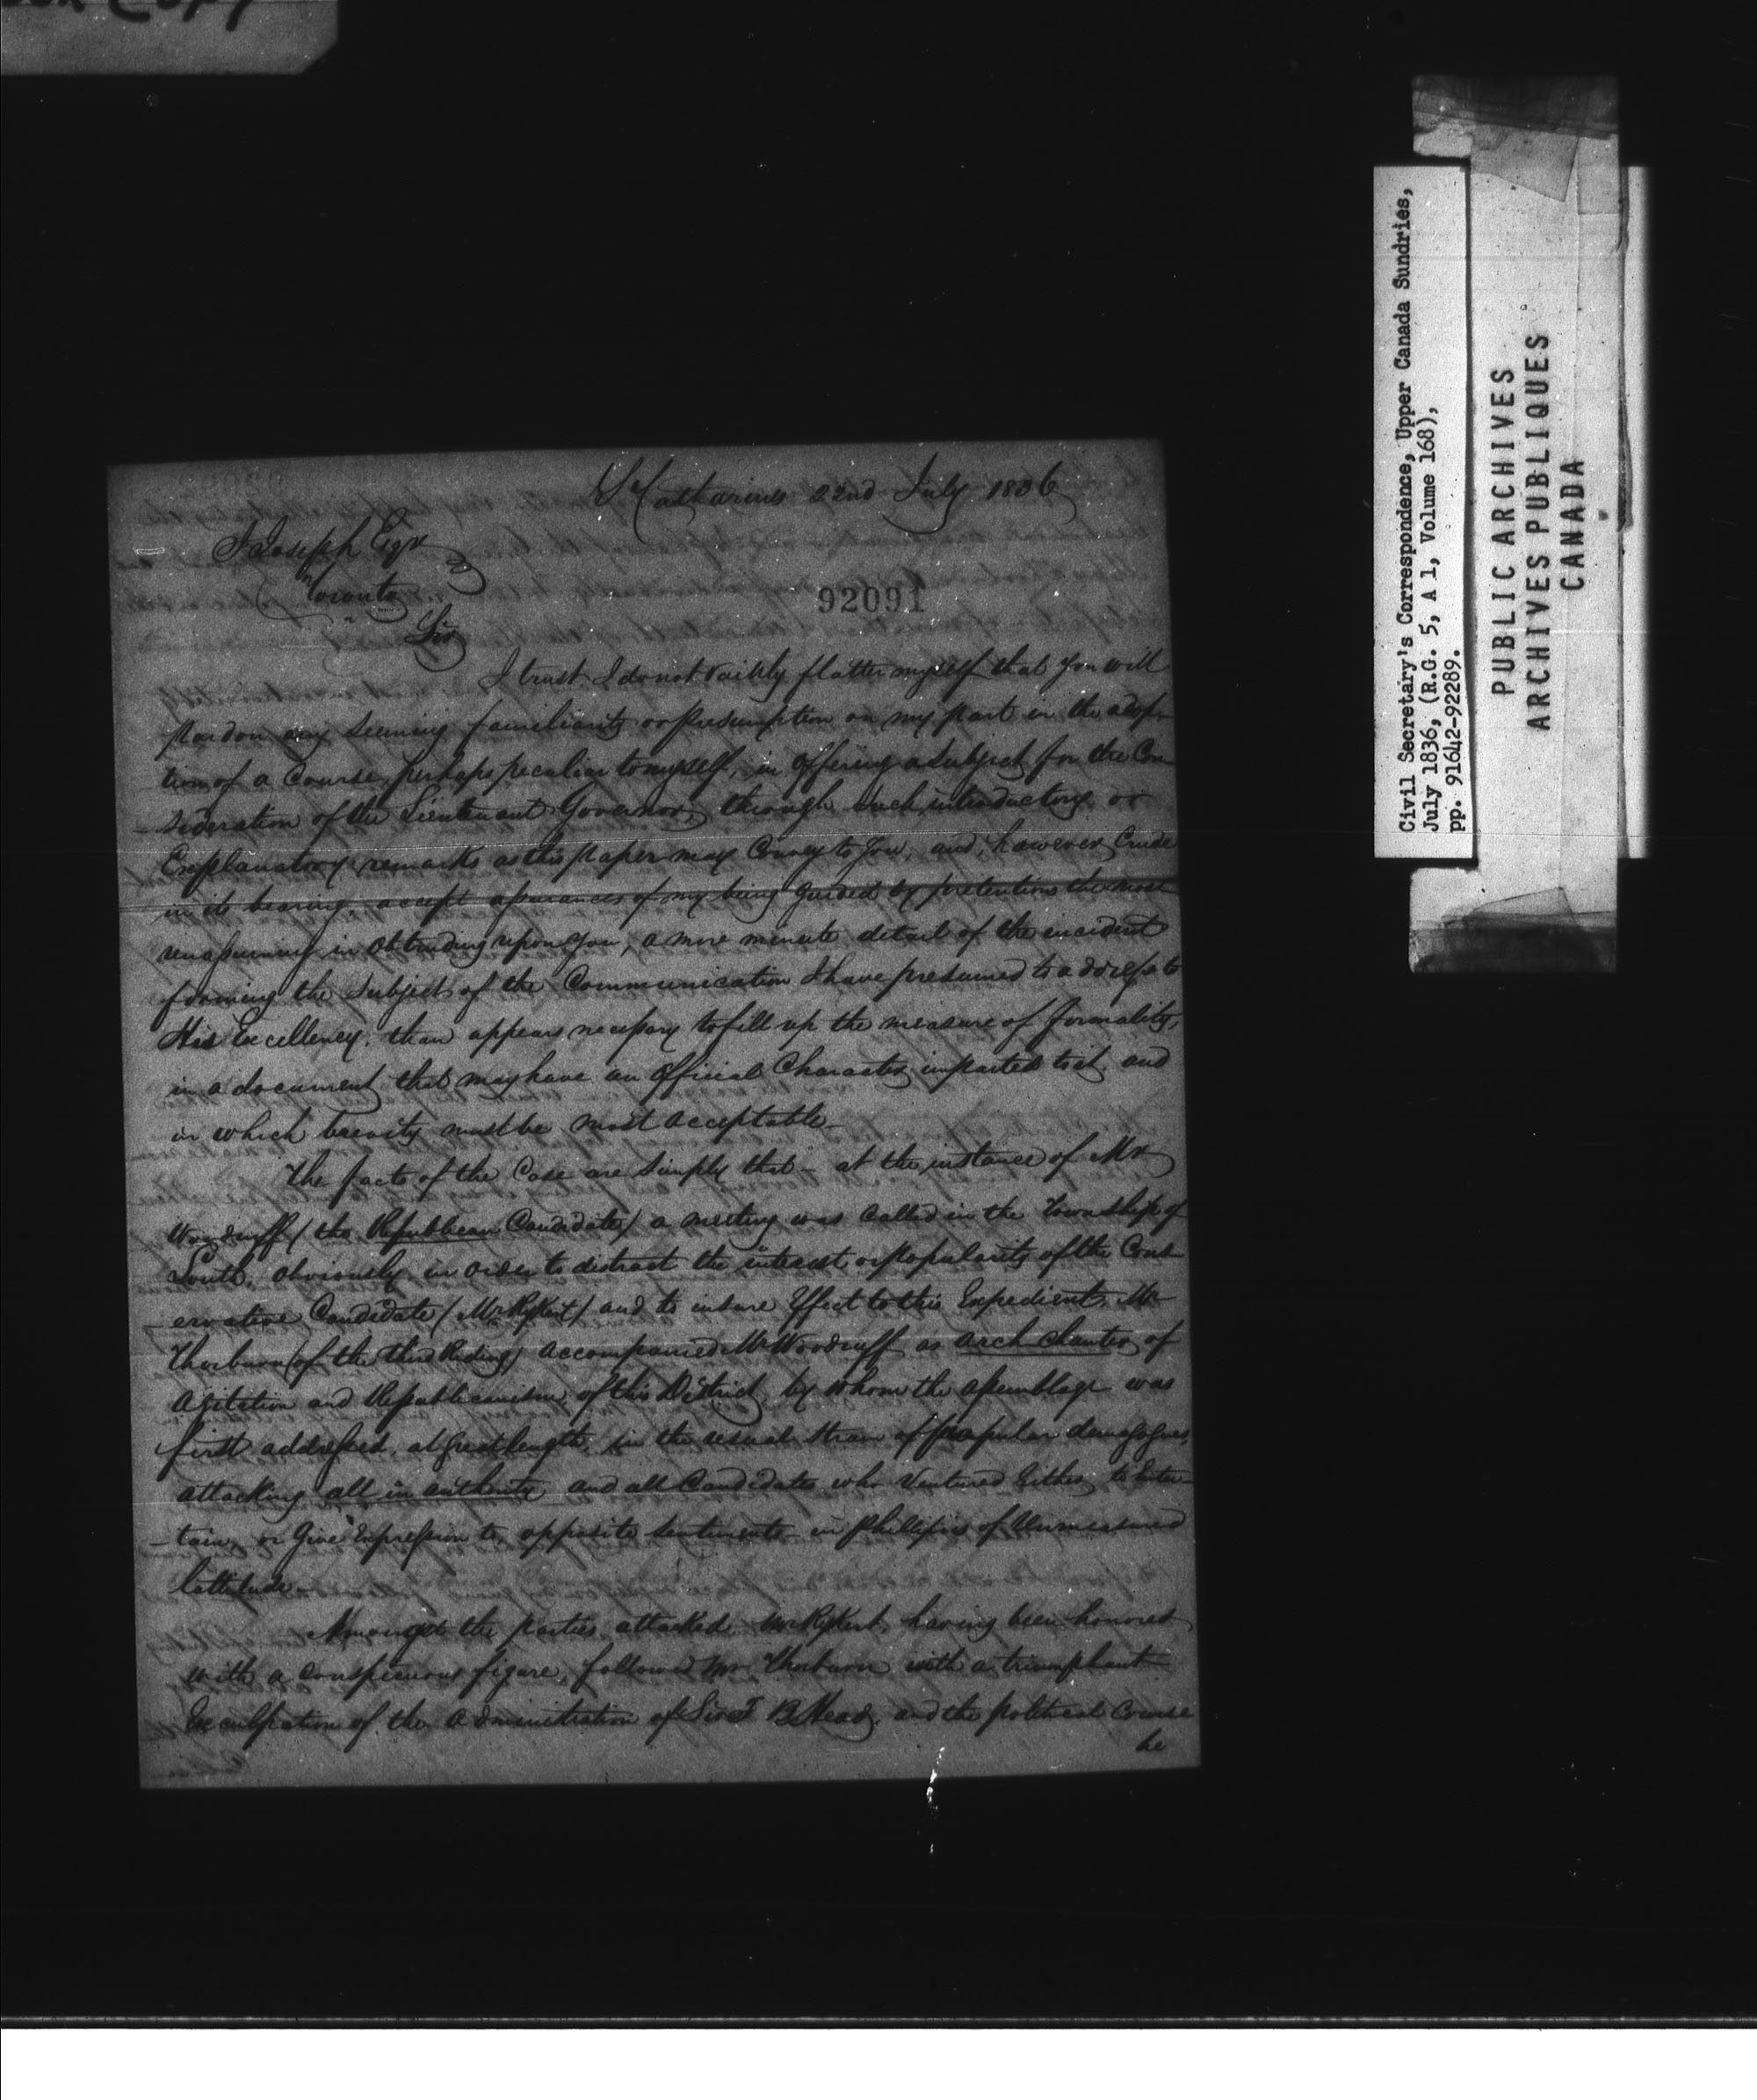 Copy
St Catharines 22nd July 1836
J Joseph Esqr
Toronto
92091
Sir
I trust I do not vainly flatter myself that you will
pardon any seeming familiarity or presumption on my part in the adop-
tion of a Course, perhaps peculiar to myself, in offering a subject for the Con
sideration of the Lieutenant Governor, through such introductory or
Explanatory remarks as this paper may Convey to you, and, however Crude
in its bearing, accept assurances of my being guided by pretentions the most
unassuming in obtruding upon you, a more minute detail of the incident
forming the Subject of the Communication I have presumed to address to
His Excellency, than appears necessary to fill up the measure of formality,
in a document that may have an Official Character imparted to it, and
in which brevity must be most acceptable-
The facts of the Case are simply that - at the instance of Mr
Woodruff (the Republican Candidate) a meeting was Called in the Township of
Louth, obviously in order to distract the interest or popularity of the Cons
-ervative Candidate (Mr Rykert) and to insure Effect to this Expedient, Mr
Thorburn (of the third Riding) accompanied Mr Woodruff as arch chanter of
Agitation and Republicanism, of this District, by whom the assemblage was
first addressed, at great length, in the usual strain of popular demagogues,
attacking all in authority, and all Candidates who Ventured Either to Enter
-tain, or Give Expression to, opposite sentiments - in Phillipics of Unmeasured
lattitude-
Amongst the parties attacked, Mr Rykert, having been honored
with a conspicuous figure, followed Mr Thorburn with a triumphant
Exculpation of the administration of Sir F B Head, and the political Course
he
Civil Secretary's Correspondence, Upper Canada Sundries,
July 1836, (R.G. 5, A 1, Volume 168),
pp. 91642-92289.
PUBLIC ARCHIVES
ARCHIVES PUBLIQUES
CANADA